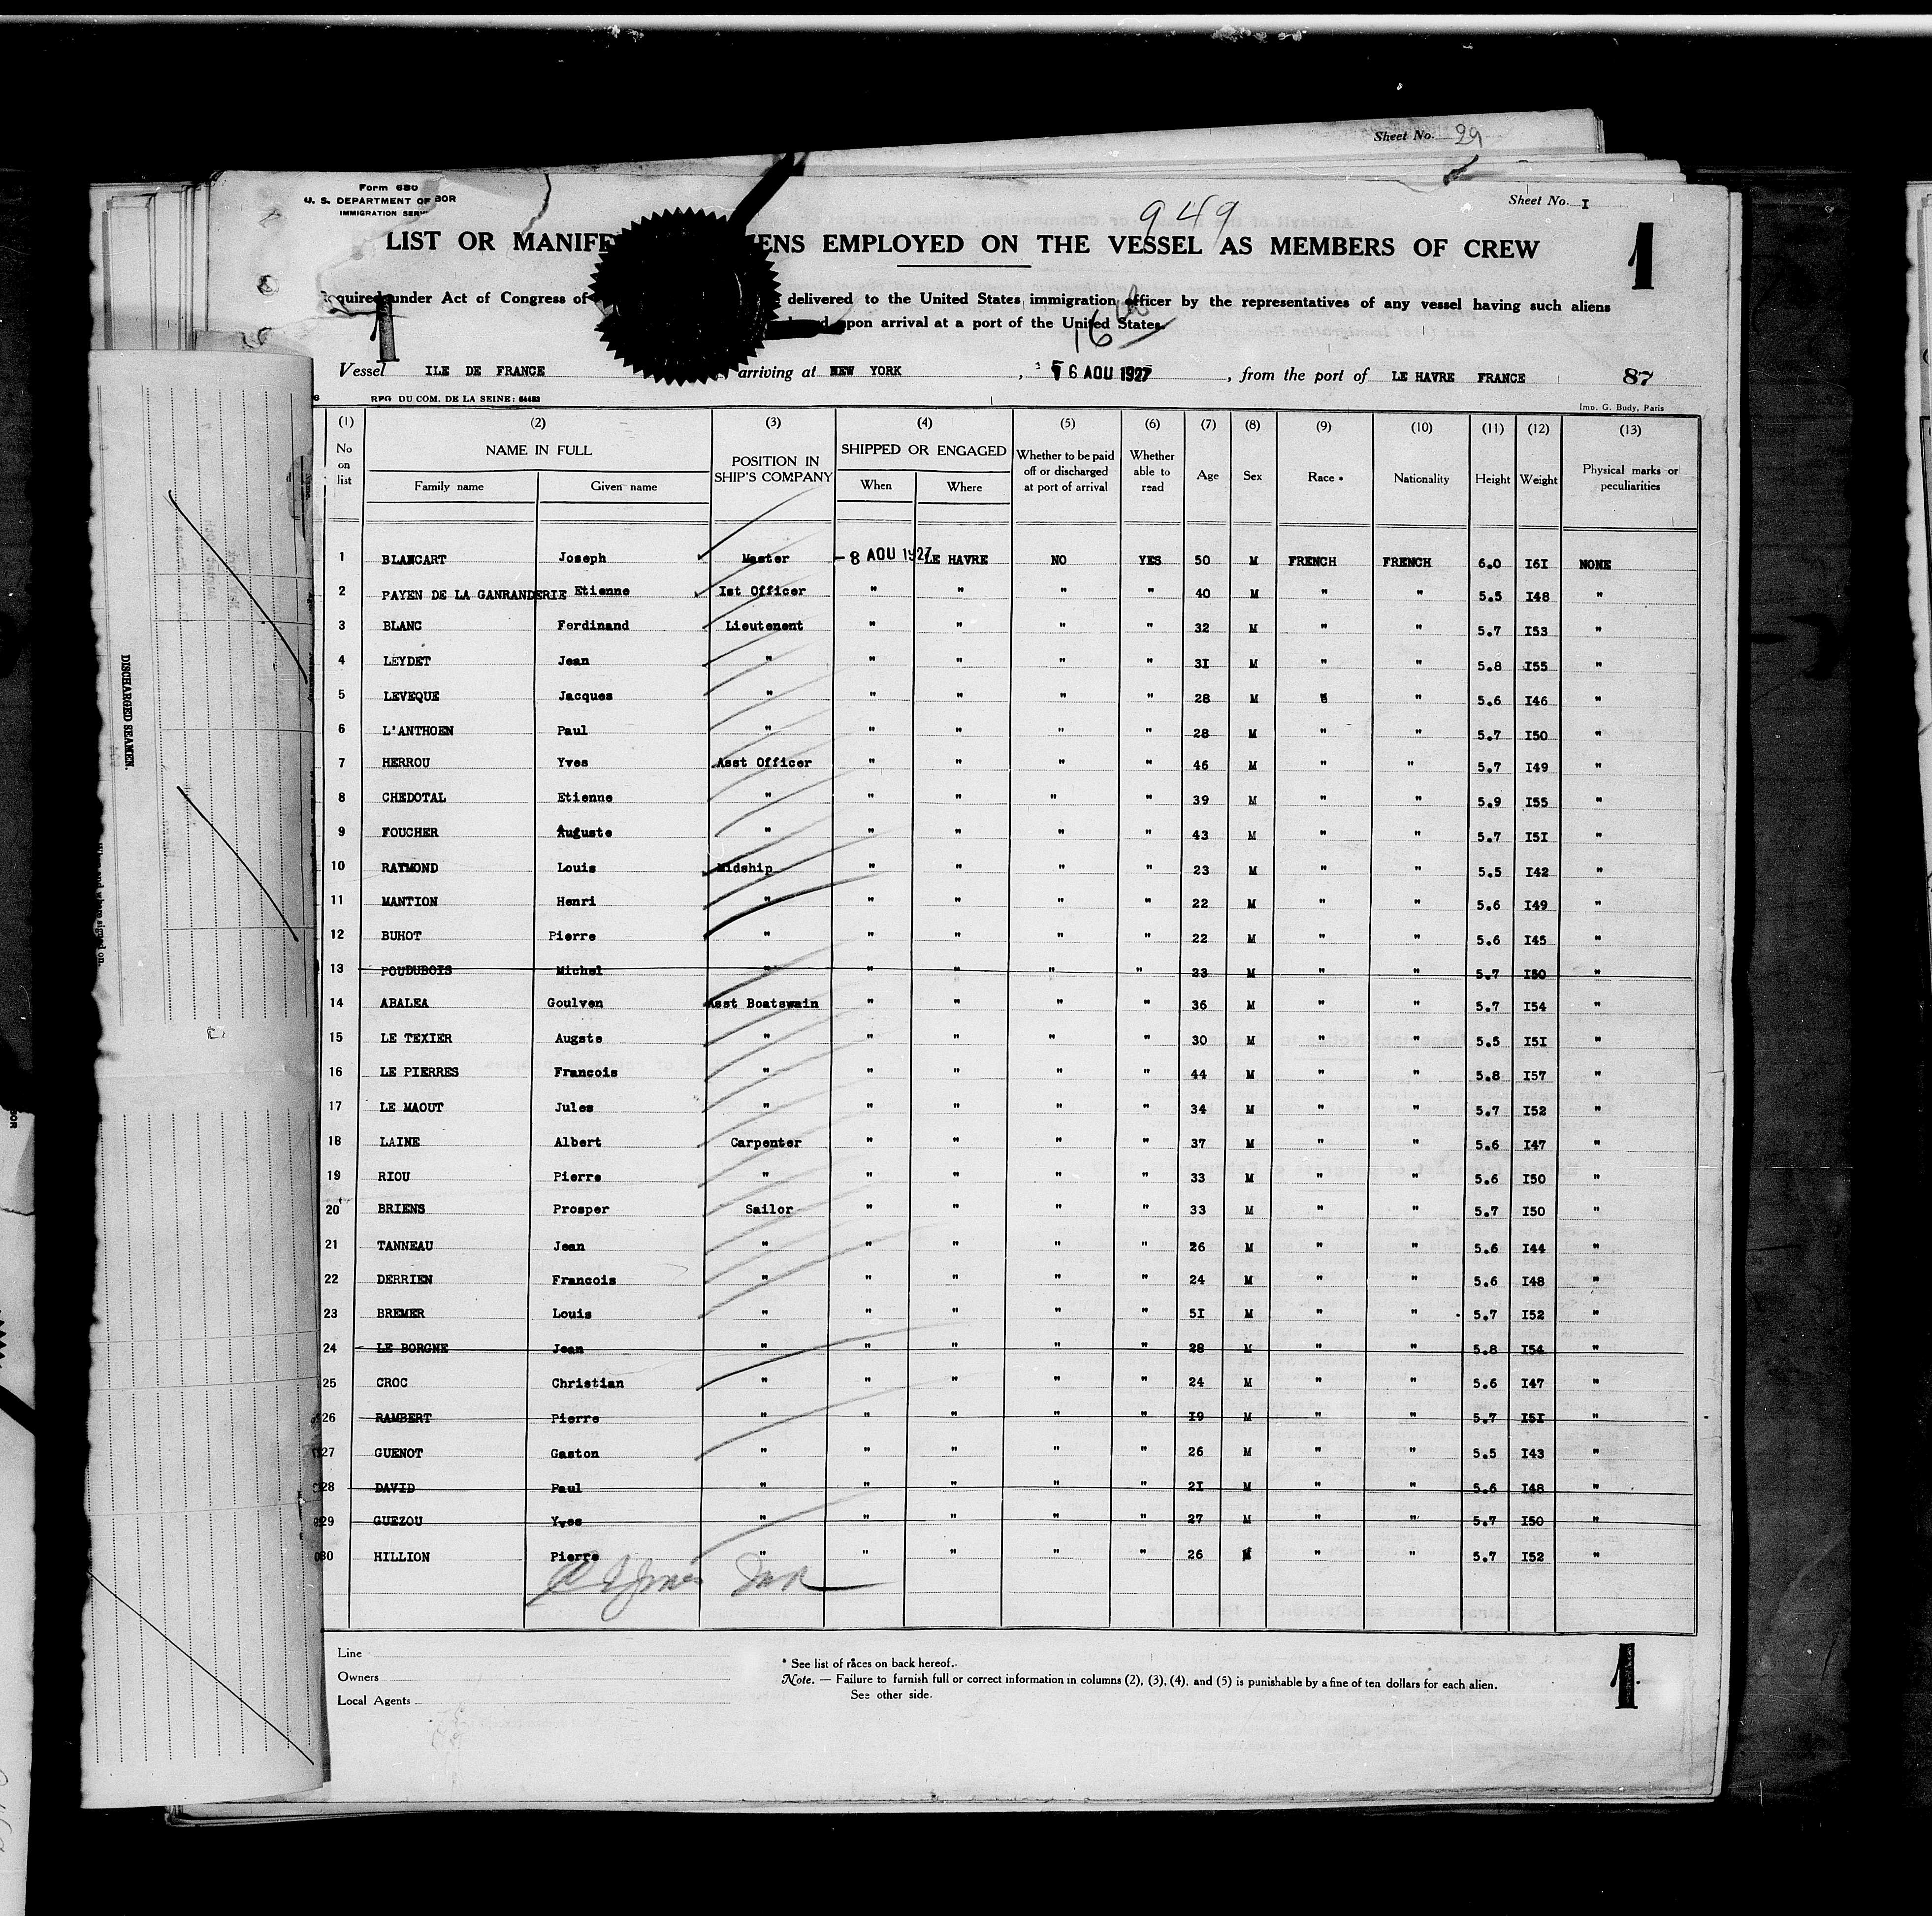 Sheet No. 29
Form 680
U. S. DEPARTMENT OF BOR
IMMIGRATION SERV
Sheet No. I
949
1
LIST OR MANIFE ENS EMPLOYED ON THE VESSEL AS MEMBERS OF CREW
quired under Act of Congress of delivered to the United States immigration officer by the representatives of any vessel having such aliens
upon arrival at a port of the United States.
1
16th
Vessel ILE DE FRANCE , arriving at NEW YORK , 6 AOU 1927 , from the port of LE HAVRE FRANCE 87
REG DU COM. DE LA SEINE: 64483
Imp. G. Budy, Paris
(1) (2) (3) (4) (5) (6) (7) (8) (9) (10) (11) (12) (13)
No on list NAME IN FULL POSITION IN SHIP'S COMPANY SHIPPED OR ENGAGED Whether to be paid off or discharged at port of arrival Whether able to read Age Sex Race * Nationality Height Weight Physical marks or peculiarities
Family name Given name When Where
1 BLANCART Joseph Master - 8 AOU 1927 LE HAVRE NO YES 50 M FRENCH FRENCH 6.0 I6I NONE
2 PAYEN DE LA GANRANDERIE Etienne Ist Officer " " " " 40 M " " 5.5 I48 "
3 BLANC Ferdinand Lieutenent " " " " 32 M " " 5.7 I53 "
4 LEYDET Jean " " " " " 3I M " " 5.8 I55 "
5 LEVEQUE Jacques " " " " " 28 M " " 5.6 I46 "
6 L'ANTHOEN Paul " " " " " 28 M " " 5.7 I50 "
7 HERROU Yves Asst Officer " " " " 46 M " " 5.7 I49 "
8 CHEDOTAL Etienne " " " " " 39 M " " 5.9 I55 "
9 FOUCHER Auguste " " " " " 43 M " " 5.7 I5I "
10 RAYMOND Louis Midship " " " " 23 M " " 5.5 I42 "
11 MANTION Henri " " " " " 22 M " " 5.6 I49 "
12 BUHOT Pierre " " " " " 22 M " " 5.6 I45 "
13 POUDUBOIS Michel " " " " " 23 M " " 5.7 I50 "
14 ABALEA Goulven Asst Boatswain " " " " 36 M " " 5.7 I54 "
15 LE TEXIER Augste " " " " " 30 M " " 5.5 I5I "
16 LE PIERRES Francois " " " " " 44 M " " 5.8 I57 "
17 LE MAOUT Jules " " " " " 34 M " " 5.7 I52 "
18 LAINE Albert Carpenter " " " " 37 M " " 5.6 I47 "
19 RIOU Pierre " " " " " 33 M " " 5.6 I50 "
20 BRIENS Prosper Sailor " " " " 33 M " " 5.7 I50 "
21 TANNEAU Jean " " " " " 26 M " " 5.6 I44 "
22 DERRIEN Francois " " " " " 24 M " " 5.6 I48 "
23 BREMER Louis " " " " " 5I M " " 5.7 I52 "
24 LE BORGNE Jean " " " " " 28 M " " 5.8 I54 "
25 CROC Christian " " " " " 24 M " " 5.6 I47 "
26 RAMBERT Pierre " " " " " I9 M " " 5.7 I5I "
27 GUENOT Gaston " " " " " 26 M " " 5.5 I43 "
28 DAVID Paul " " " " " 2I M " " 5.6 I48 "
29 GUEZOU Yves " " " " " 27 M " " 5.7 I50 "
30 HILLION Pierre " " " " " 26 M " " 5.7 I52 "
Line
Owners
Local Agents
* See list of races on back hereof.
Note. — Failure to furnish full or correct information in columns (2), (3), (4), and (5) is punishable by a fine of ten dollars for each alien.
See other side.
1
DISCHARGED SEAMEN.